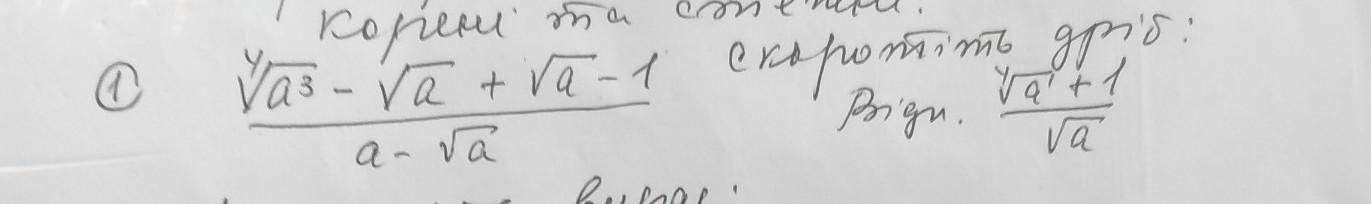 корені та степени.
① (∜a³ - √a + √a - 1)/(a - √a) скоротіть дріб:
Відп. (∜a + 1)/√a